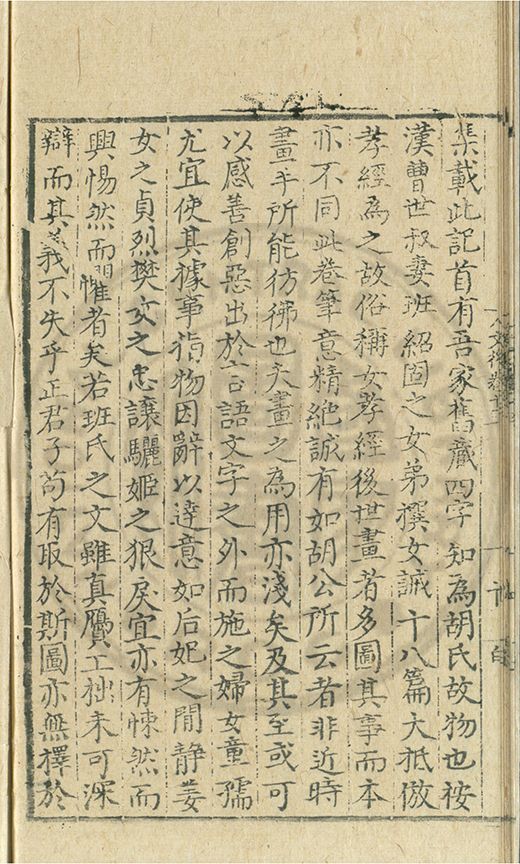 集載此記首有吾家舊藏四字知為胡氏故物也按
漢曹世叔妻班紹固之女弟撰女誡十八篇大抵倣
孝經為之故俗稱女孝經後世畫者多圖其事而本
亦不同此卷筆意精絶誠有如胡公所云者非近時
畫手所能彷彿也夫畫之為用亦淺矣及其至或可
以感善創惡出於言語文字之外而施之婦女童孺
尤宜使其據事指物因辭以達意如后妃之閒静姜
女之貞烈樊女之忠讓驪姬之狠戾宜亦有悚然而
興惕然而懼者矣若班氏之文雖真贗工拙未可深
辯而其義不失乎正君子苟有取於斯圖亦無擇於